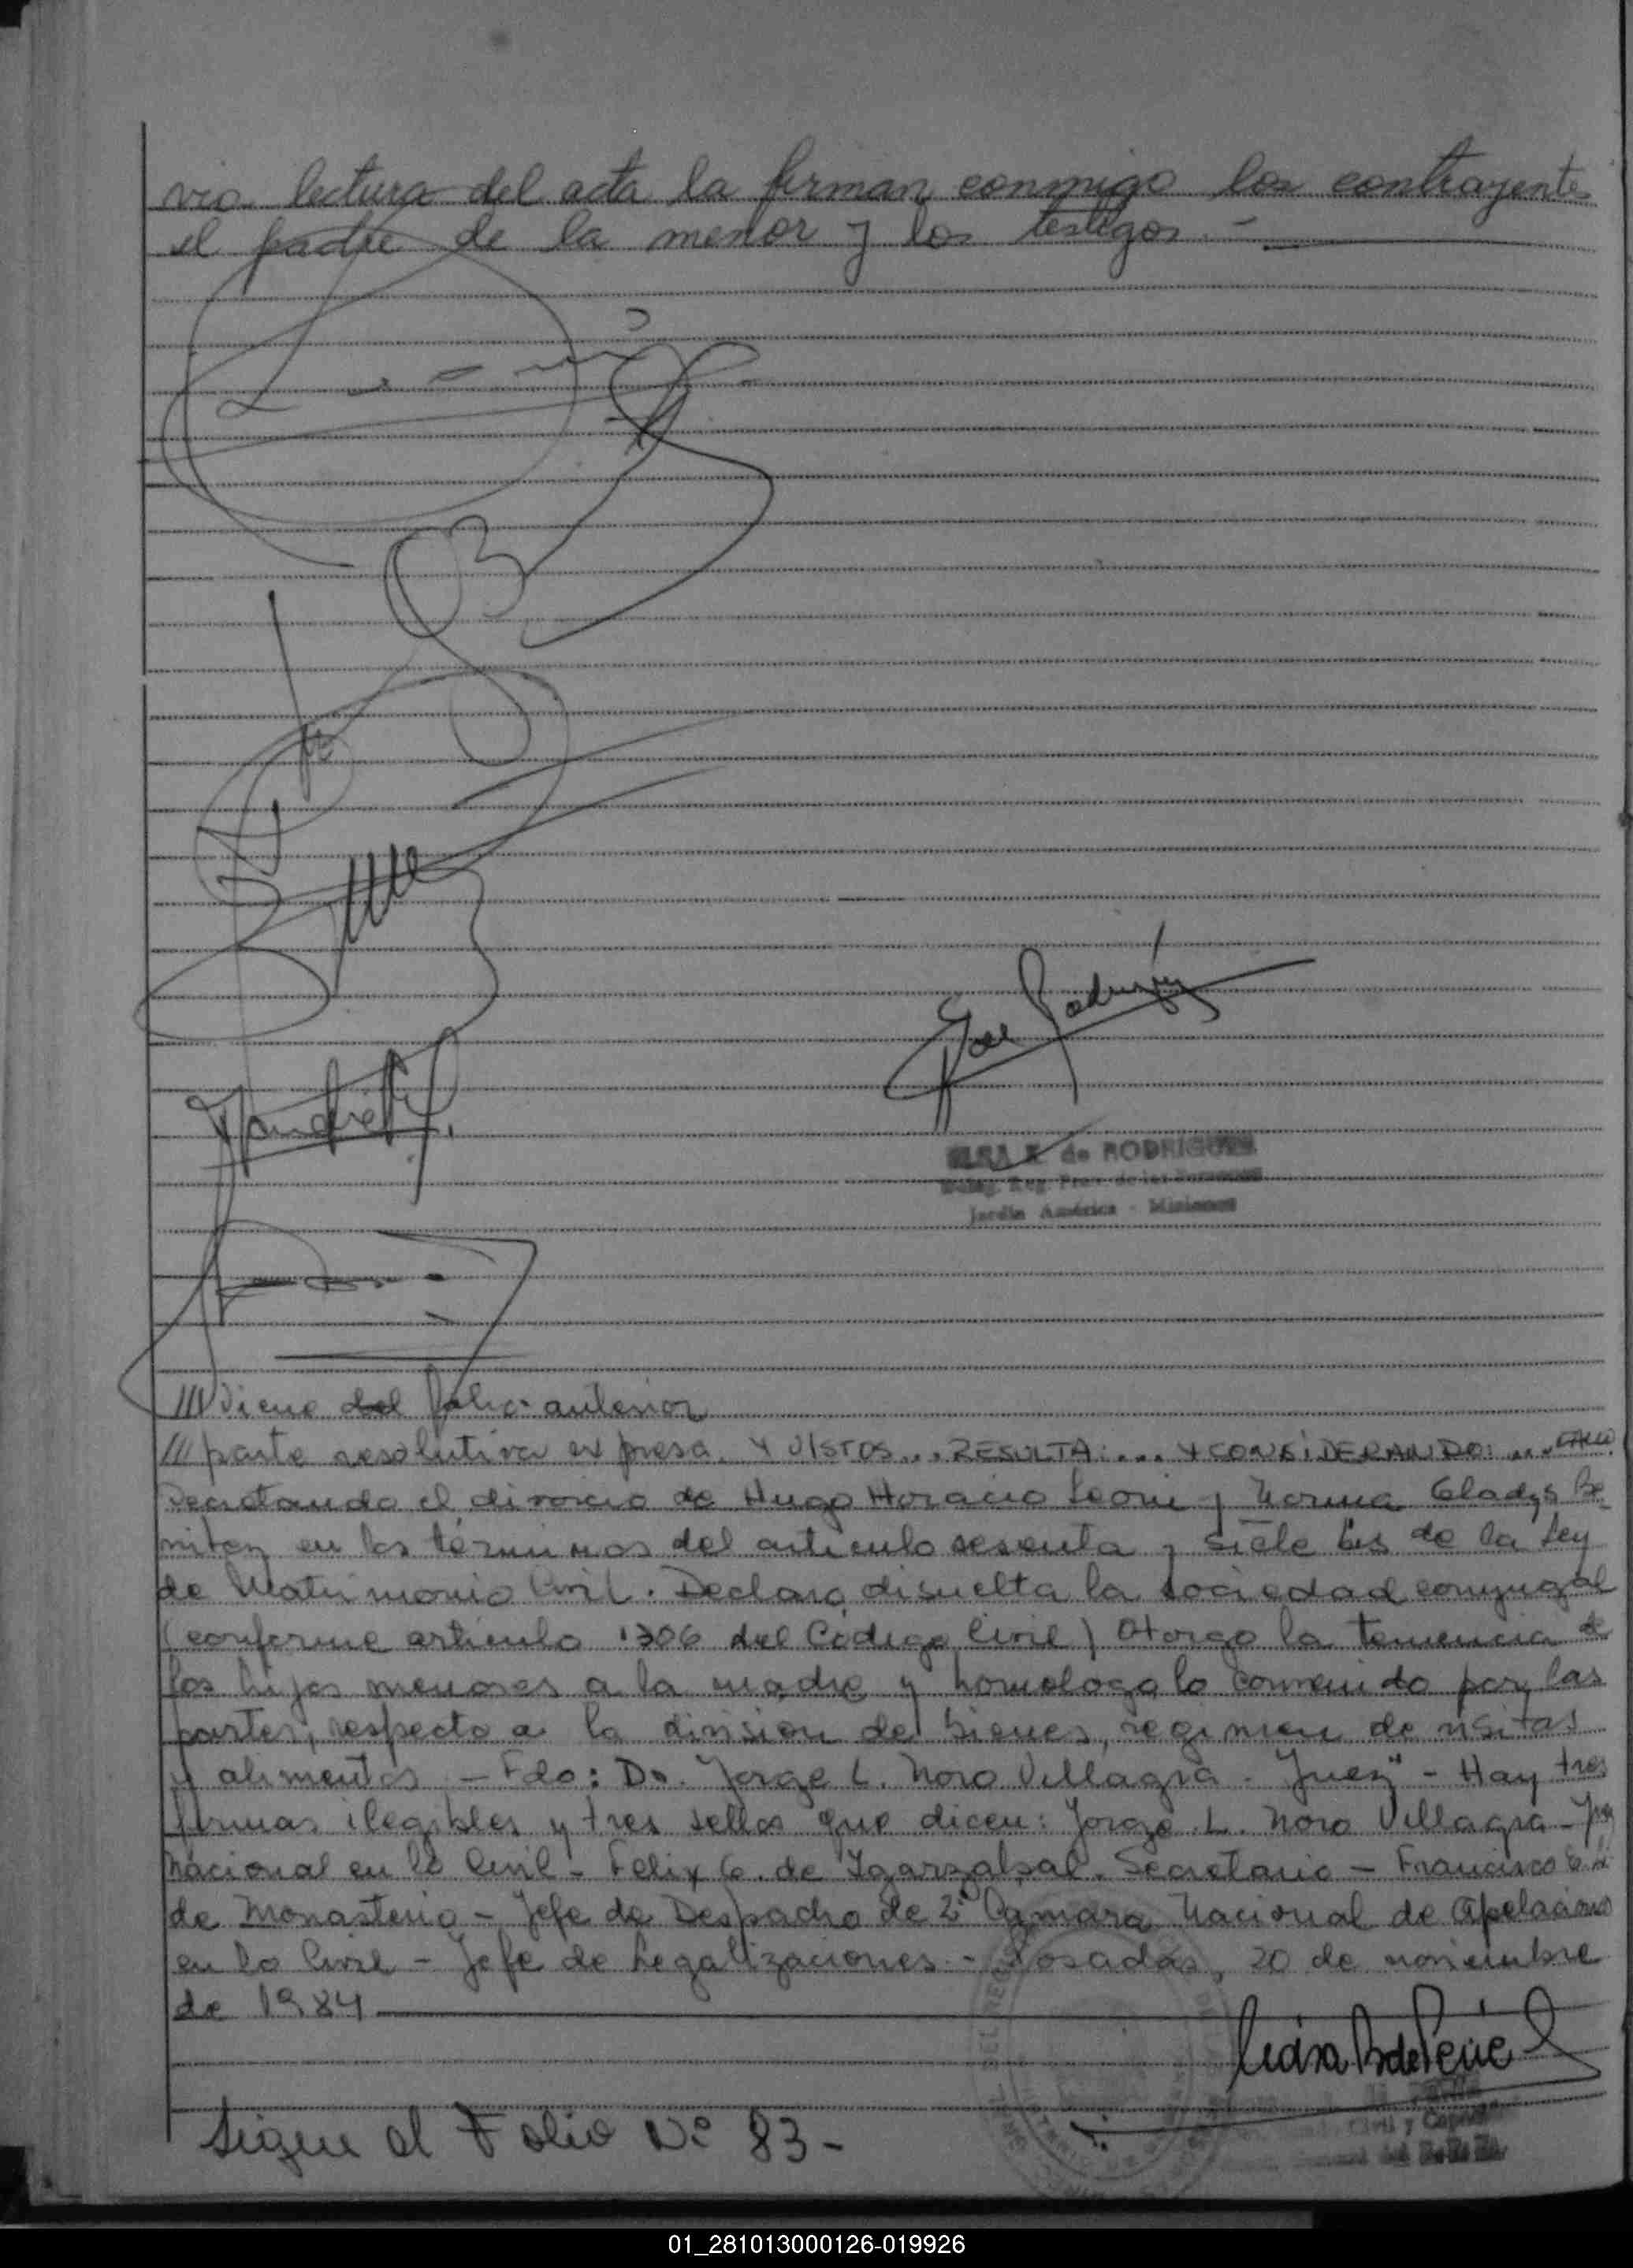 via lectura del acta la firman conmigo los contrayentes
el padre de la menor y los testigos. -
de RODRIGUEZ
Jardín América - Misiones
/// Viene del folio anterior
/// parte resolutiva expresa. Y VISTOS... RESULTA:... Y CONSIDERANDO: ... FALLO
Decretando el divorcio de Hugo Horacio Leoni y Norma Gladys Be-
nitez en los términos del artículo sesenta y siete bis de la Ley
de Matrimonio Civil. Declaro disuelta la sociedad conyugal
(conforme artículo 1306 del Código Civil) Otorgo la tenencia de
los hijos menores a la madre y homologo lo convenido por las
partes, respecto a la división de bienes, regimen de visitas
y alimentos - Fdo: Dr. Jorge L. Noro Villagra - Juez" - Hay tres
firmas ilegibles y tres sellos que dicen: Jorge L. Noro Villagra - Juez
Nacional en lo Civil - Felix G. de Igarzabal. Secretario - Francisco
de Monasterio - Jefe de Despacho de 2ª Camara Nacional de Apelaciones
en lo Civil - Jefe de Legalizaciones - Posadas, 20 de noviembre
de 1984
Civil y
Sigue al Folio Nº 83-
01_281013000126-019926